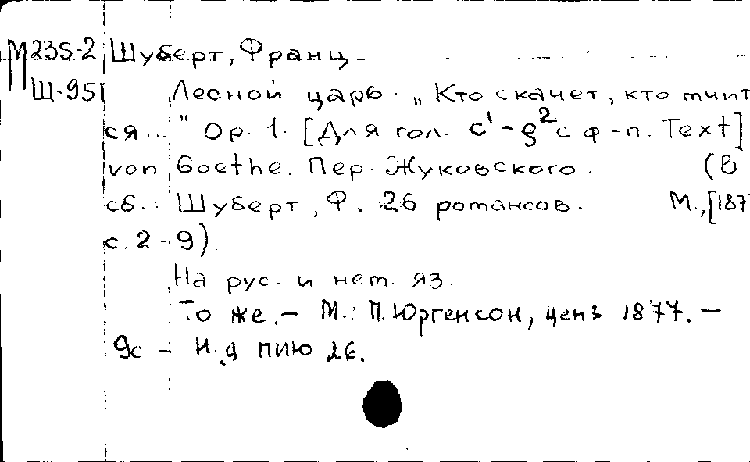 М235-2 Шуберт, Франц
Ш-951 Лесной царь. „Кто скачет, кто мчит
ся..." Op. 1. [Для гол. c¹-g² с ф-п. Text]
von Goethe. Пер. Жуковского. (В
сб.: Шуберт, Ф. 26 романсов. М.,[187
с. 2-9).
На рус. и нем. яз.
То же.- М.: П. Юргенсон, ценз 1877. -
9с - Н.д 26.